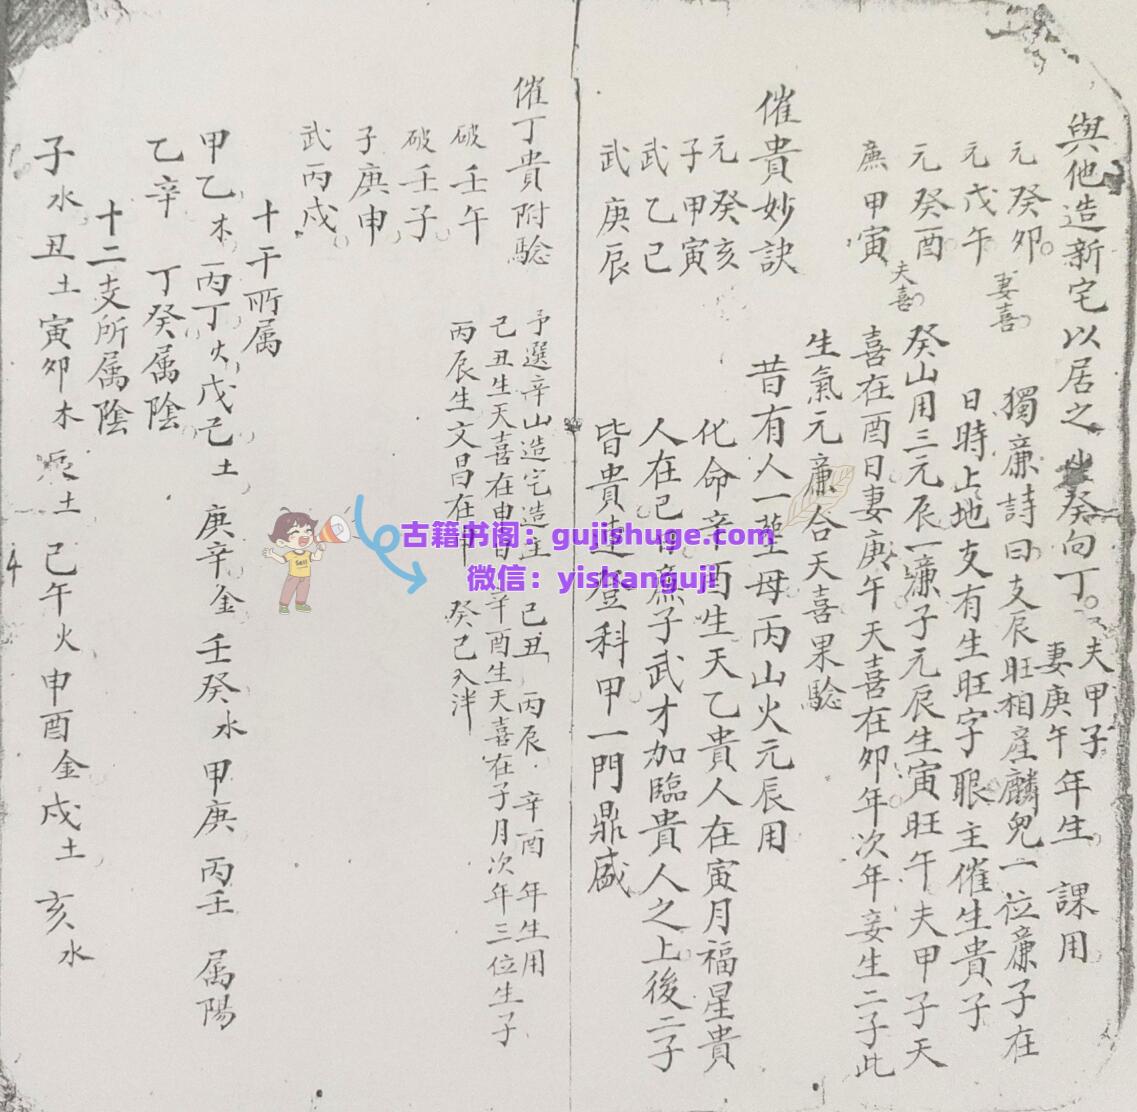 與他造新宅以居之 癸向丁 夫甲子 妻庚午 年生 課用
元癸卯
元戊午 妻喜
元癸酉
廉甲寅 夫喜
獨廉詩曰支辰旺相產麟兒一位廉子在
日時上地支有生旺字眼主催生貴子
癸山用三元辰一廉子元辰生寅旺午夫甲子天
喜在酉日妻庚午天喜在卯年次年妾生二子此
生氣元廉合天喜果驗
催貴妙訣
元癸亥
子甲寅
武乙己
武庚辰
昔有人一塟母丙山火元辰用
化命辛酉生天乙貴人在寅月福星貴
人在己日廉子武才加臨貴人之上後二子
皆貴連登科甲一門鼎盛
催丁貴附驗
破壬午
破壬子
子庚申
武丙戌
予選辛山造宅造主 己丑 丙辰 辛酉 年生用
己丑生天喜在申 辛酉生天喜在子月次年三位生子
丙辰生文昌在申 癸己入泮
十干所属
甲乙木丙丁火戊己土 庚辛金 壬癸水 甲庚 丙壬 属陽
乙辛 丁癸属陰
十二支所属陰
子水丑土寅卯木辰土 己午火申酉金戌土 亥水
古籍书阁：gujishuge.com
微信：yishanguji